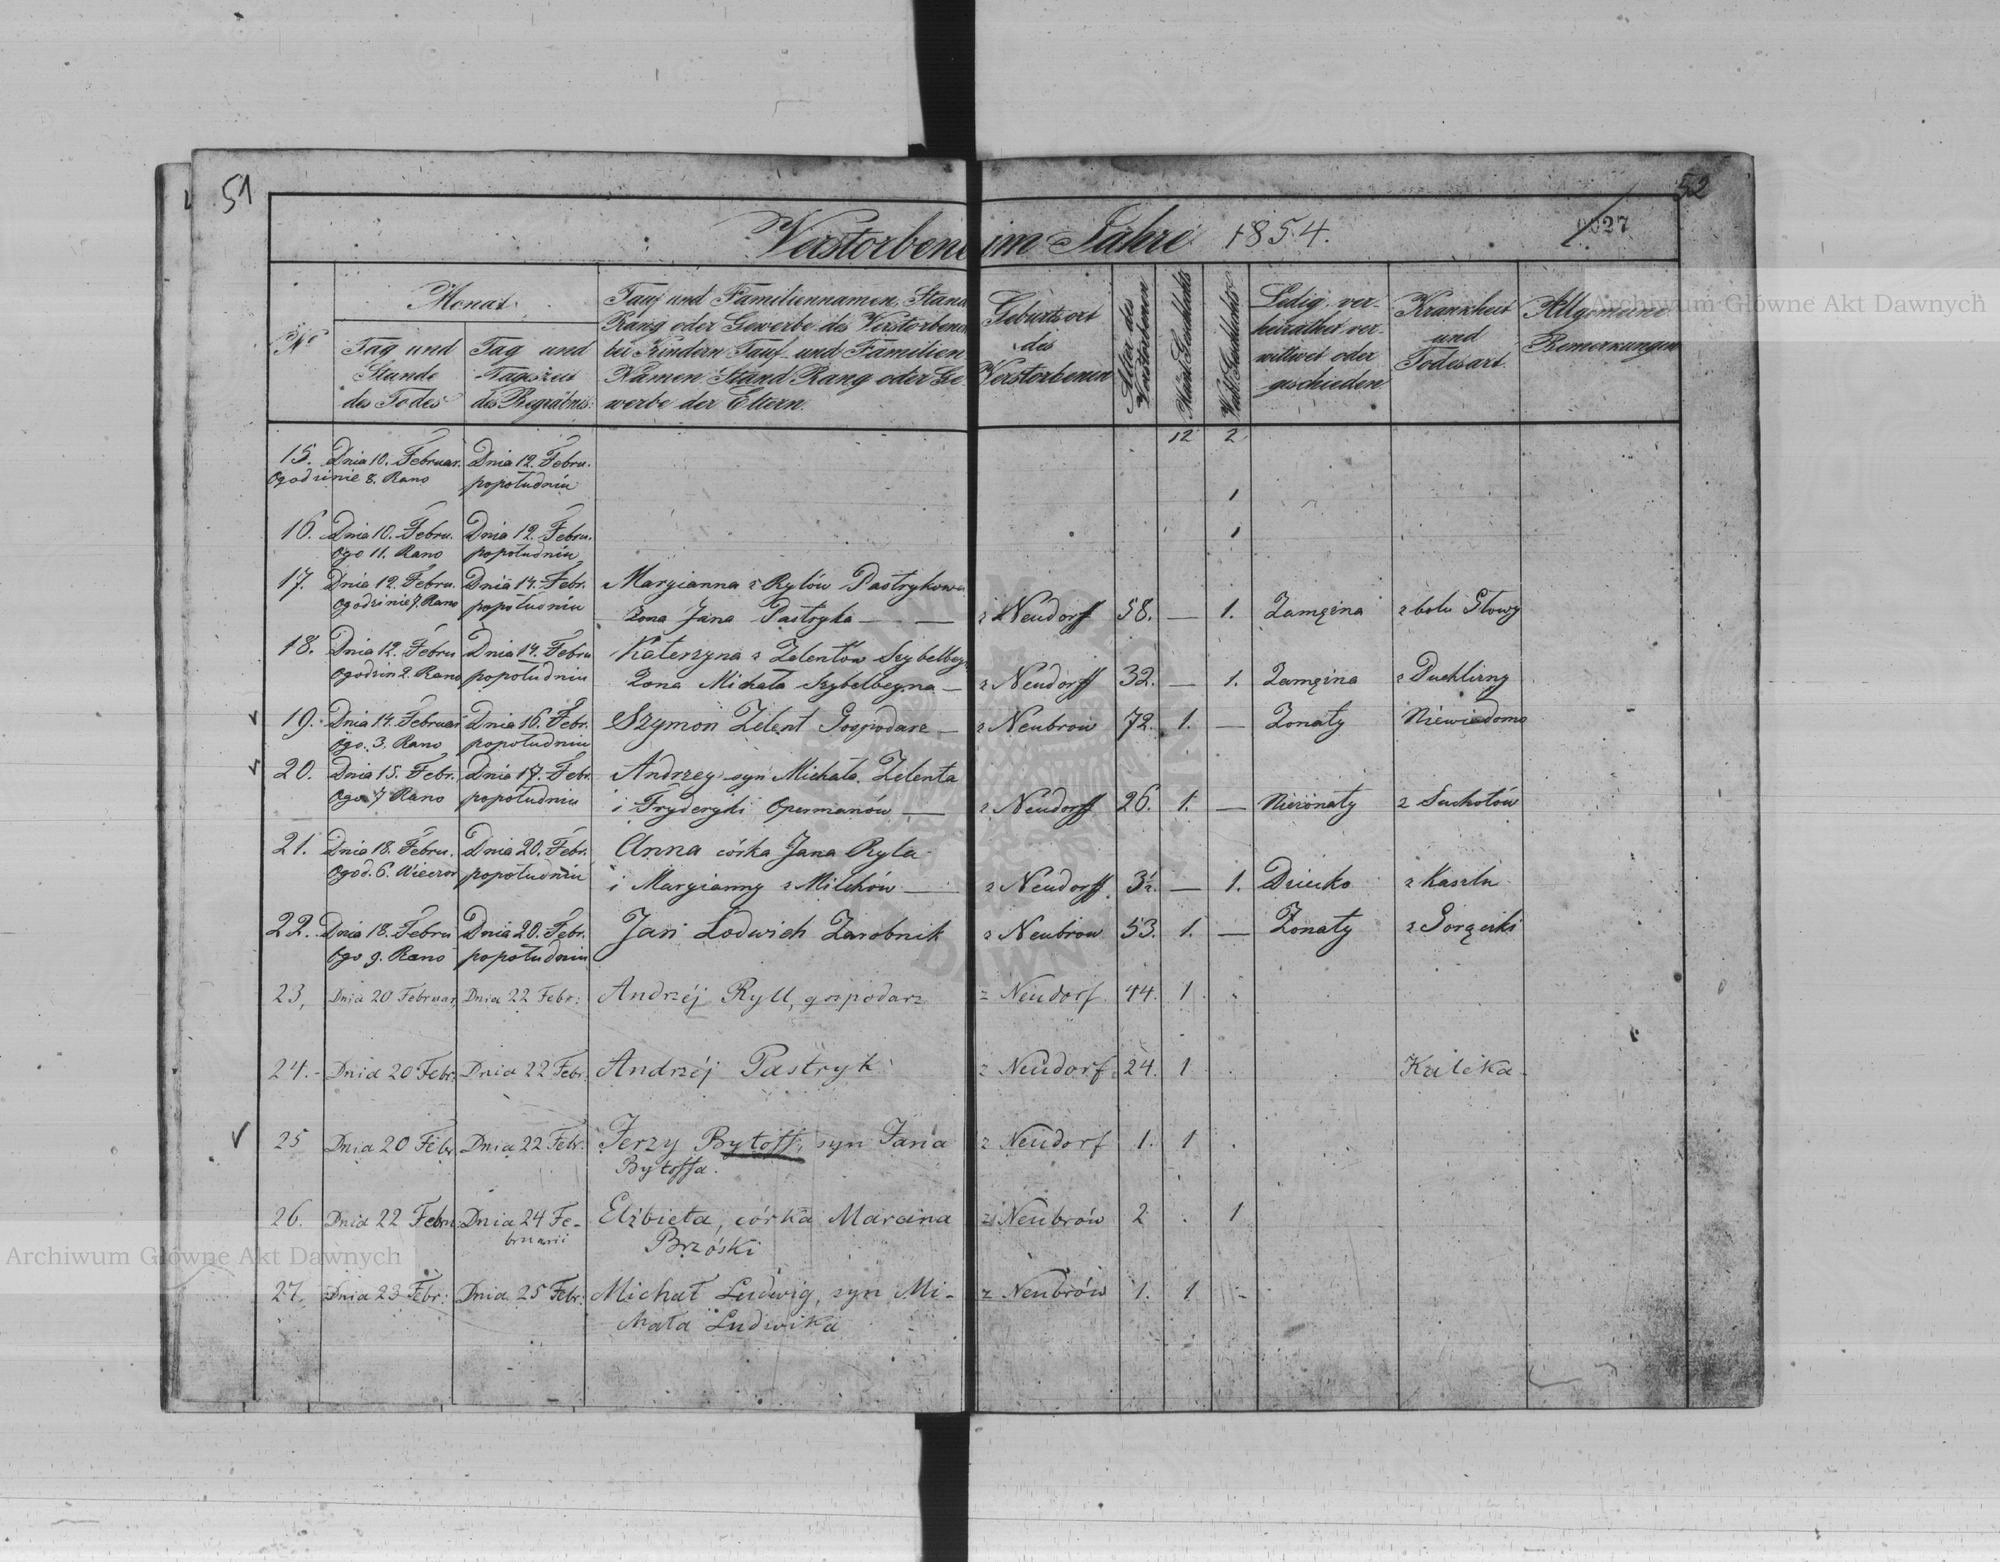 51
52
Verstorbene im Jahre 1854.
27
No
Monat
Tag und Stunde des Todes
Tag und Tagszeit des Begräbnis:
Tauf und Familiennamen, Stand
Rang oder Gewerbe des Verstorbenen
bei Kindern Tauf und Familien
Namen Stand Rang oder Ge
werbe der Eltern.
Geburtsort
des
Verstorbenen
Alter des Verstorbenen
Männl. Geschlechts
Weibl. Geschlechts
Ledig, ver-
heirathet ver
wittwet oder
geschieden
Krankheit
und
Todesart.
Allgemeine
Bemerkungen
12 2
15. Dnia 10. Februar. Dnia 12. Febru.
Ogodzinie 8. Rano popołudniu
1
16. Dnia 10. Febru. Dnia 12. Febru. 1
Ogo 11. Rano popołudniu
17. Dnia 12. Febru. Dnia 14. Febr. Maryianna z Rylów Pastrykowa
Ogodzinie 7. Rano popołudniu Żona Jana Pastryka — z Neudorff 58. — 1. Zamęzina z bolu Głowy
18. Dnia 12. Febru Dnia 14. Febru Katerzyna z Zelentów
Ogodzin 2. Rano popołudniu Żona Michała — z Neudorff 32. — 1. Zamęzina z Puchliny
19. Dnia 14. Februar Dnia 16. Febr. Szymon Zelent Gospodarz — z Neubrow 72. 1. — Zonaty Niewiadomo
Ogo. 3. Rano popołudniu
20. Dnia 15. Febr. Dnia 17. Febr. Andrzey syn Michała Zelenta
Ogo 7 Rano popołudniu i Fryderyki Opermanów — z Neudorff 26. 1. — Nieżonaty z Suchotów
21. Dnia 18. Febru. Dnia 20. Febr. Anna córka Jana Ryla
Ogod. 6. Wieczor popołudniu i Maryianny z Milchów — z Neudorff 3½. — 1. Dziecko z Kaszlu
22. Dnia 18. Febru Dnia 20. Febr. Jan Lodwich Zarobnik z Neubrow 53. 1. — Żonaty z Gorączki
Ogo 9. Rano popołudniu
23, Dnia 20 Februar, Dnia 22 Febr: Andrzéj Ryll, gospodarz z Neudorf 44. 1.
24.- Dnia 20 Febr. Dnia 22 Febr. Andrzéj Pastryk z Neudorf 24. 1 Kaleka-
25 Dnia 20 Febr Dnia 22 Febr. Jerzy Bytoff, syn Jana z Neudorf 1. 1
Bytoffa.
26. Dnia 22 Febru Dnia 24 Fe- Elżbieta, córka Marcina z Neubrów 2 . 1
bruarii Brzóski
27. Dnia 23 Febr: Dnia 25 Febr: Michał Ludwig, syn Mi- z Neubrów 1. 1 -
chała Ludwika
Archiwum Główne Akt Dawnych
Archiwum Główne Akt Dawnych